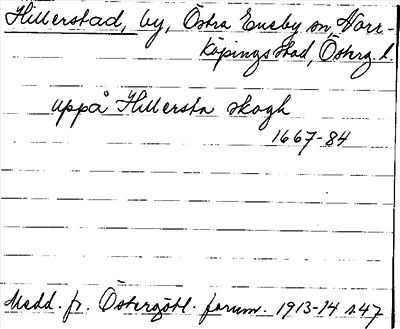 Hillerstad, by, Östra Eneby sn, Norr-
köpings stad, Österg. l.
uppå Hillersta skogh
1667-84
Medd. fr. Östergötl. fornm. 1913-14 s 47